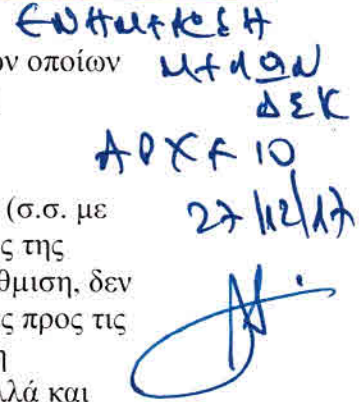 ΕΝΗΜΕΡΩΣΗ
ων οποίων ΜΕΛΩΝ
ΔΣΚ
ΑΡΧΕΙΟ
(σ.σ. με 27/12/17
ς της
θμιση, δεν
ς προς τις
η
λλά και